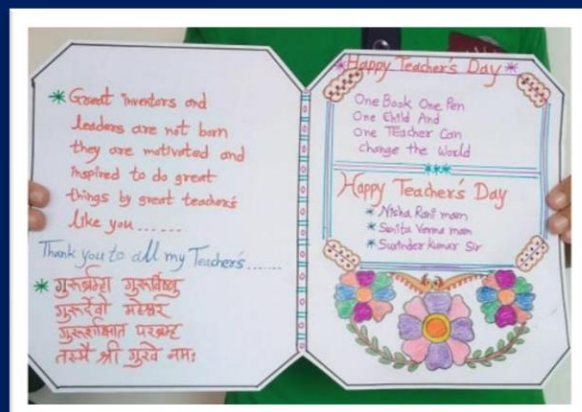 * Great inventors and
leaders are not born
they are motivated and
inspired to do great
things by great teacher's
like you......
Thank you to all my Teacher's......
* गुरुर्ब्रम्हा गुरुर्विष्णु
गुरुर्देवो महेश्वर
गुरुर्शाक्षात परब्रम्ह
तस्मै श्री गुरवे नमः
*Happy Teacher's Day*
One Book One Pen
One Child And
One Teacher Can
change the World
***
Happy Teacher's Day
* Nisha Rani mam
* Sunita Verma mam
* Surinder Kumar Sir